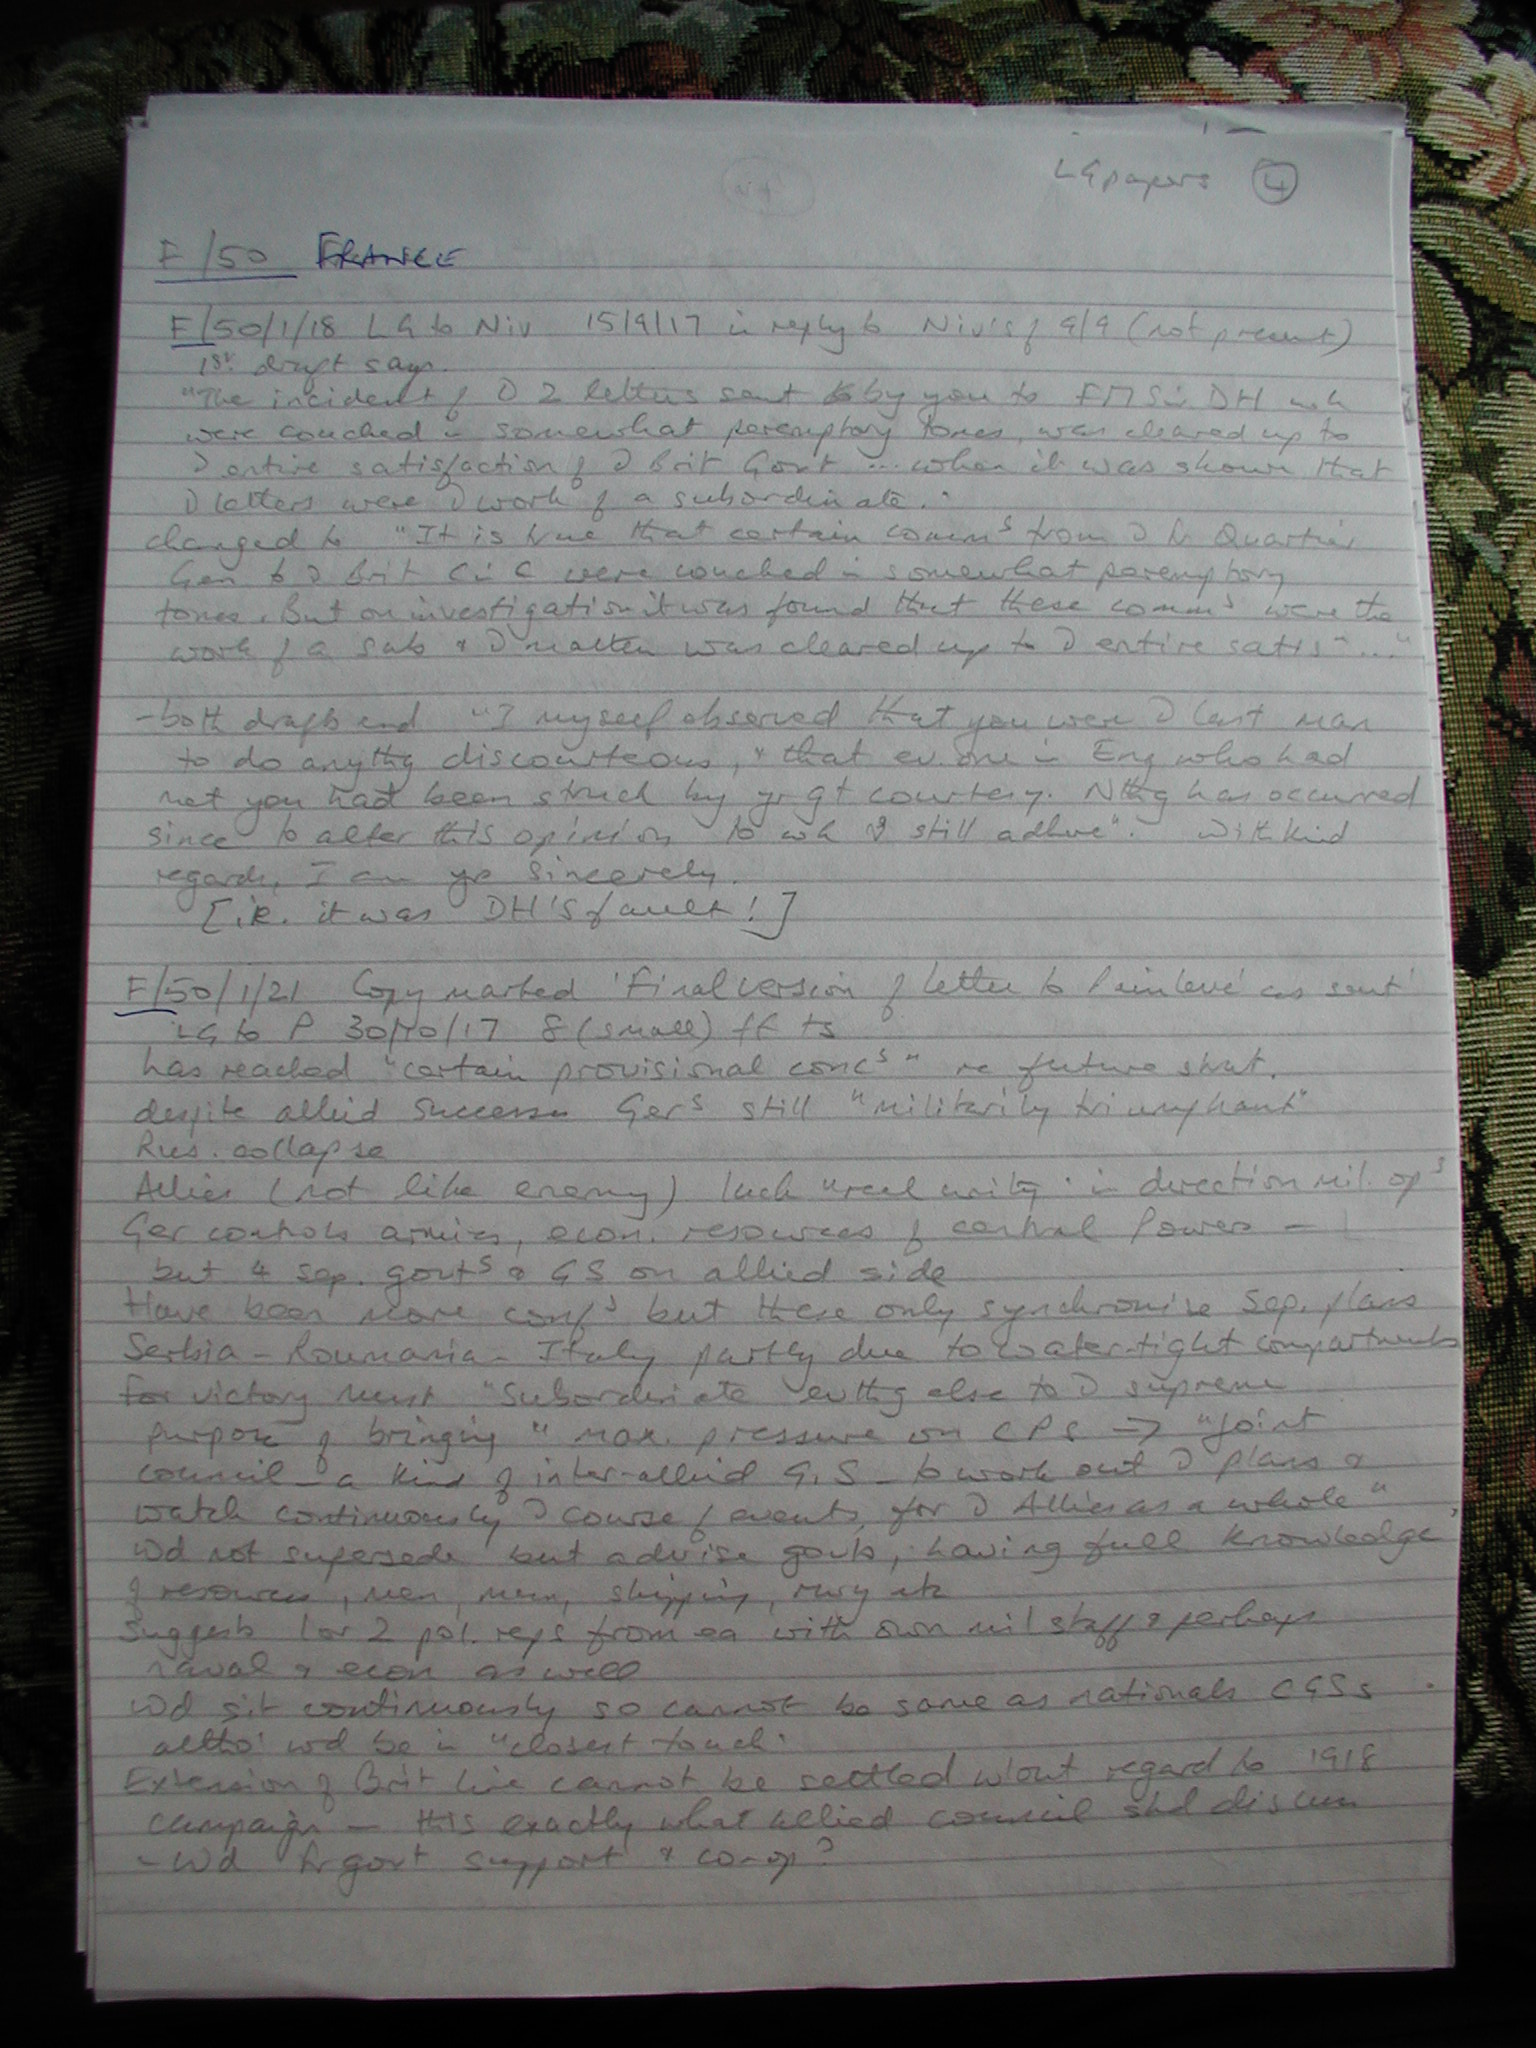 LG papers 4
F/50 FRANCE
F/50/1/18 LG to Niv 15/9/17 in reply to Niv's of 9/9 (not present)
1st. draft says.
"The incident of D 2 letters sent by you to FM Sir DH wh
were couched in somewhat peremptory tones, was cleared up to
D entire satisfaction of D Brit Govt ... when it was shown that
D letters were D work of a subordinate.
changed to "It is true that certain comms from D Fr Quartier
Gen to D Brit C in C were couched in somewhat peremptory
tones. But on investigation it was found that these comms were the
work of a sub & D matter was cleared up to D entire satisn ..."
- both drafts end "I myself observed that you were D last man
to do anythg discourteous, & that ev. one in Eng who had
met you had been struck by yr gt courtesy. Nthg has occurred
since to alter this opinion to wh I still adhere". With kind
regards, I am yrs sincerely.
[i.e. it was DH'S fault!]
F/50/1/21 Copy marked 'Final version of letter to Painlevé as sent'
LG to P 30/10/17 8 (small) ff ts
has reached "certain provisional concs" re future strat.
despite allied successes Gers still "militarily triumphant"
Rus. collapse
Allies (not like enemy) lack "real unity" in direction mil. ops
Ger controls armies, econ. resources of central Powers -
but 4 sep. govts & GS on allied side
Have been more confs but these only synchronise sep. plans
Serbia - Roumania - Italy partly due to water-tight compartments
for victory must "subordinate evthg else to D supreme
purpose of bringing" max. pressure on CPs → "joint
council - a kind of inter-allied G.S - to work out D plans &
watch continuously D course of events, for D Allies as a whole"
wd not supersede but advise govts, having full knowledge
of resources, men, shipping, rwy etc
Suggests 1 or 2 pol. reps from ea with own mil staff & perhaps
naval & econ as well
wd sit continuously so cannot be same as nationals CGSs
altho' wd be in "closest touch"
Extension of Brit line cannot be settled w'out regard to 1918
campaign - this exactly what allied council shd discuss
- Wd Fr govt support & co-op?